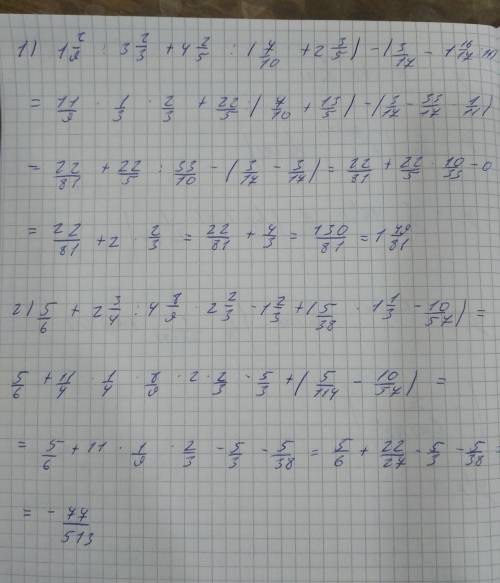 1) 1 2/9 : 3 2/3 + 4 2/5 : (7/10 + 2 3/5) - (3/17 - 1 16/17
= 11/9 · 1/3 · 2/3 + 22/5 · (7/10 + 13/5) - (3/17 - 33/17 · 1/11)
= 22/81 + 22/5 : 33/10 - (3/17 - 3/17) = 22/81 + 22/5 · 10/33 - 0
= 22/81 + 2 · 2/3 = 22/81 + 4/3 = 130/81 = 1 49/81
2) 5/6 + 2 3/4 : 4 8/9 · 2 2/3 - 1 2/3 + (5/38 · 1 1/3 - 10/57) =
5/6 + 11/4 · 1/4 · 8/9 · 2 · 2/3 · 5/3 + (5/114 - 10/57) =
= 5/6 + 11 · 1/9 · 2/3 - 5/3 - 5/38 = 5/6 + 22/27 - 5/3 - 5/38 =
= - 77/513